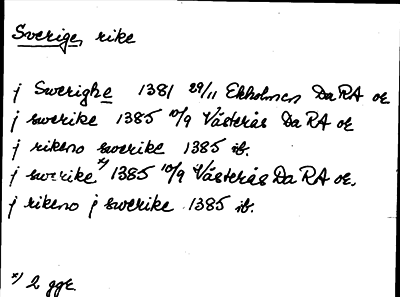 Sverige, rike
j Swerighe 1381 29/11 Ekholmen DaRA or.
j swerike 1385 10/9 Västerås DaRA or.
j rikeno swerike 1385 ib.
j swerike x) 1385 10/9 Västerås DaRA or.
j rikeno j swerike 1385 ib.
x) 2 ggr.